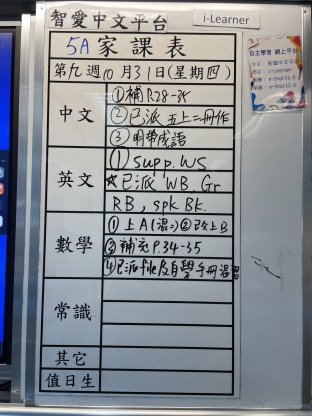 智愛中文平台
i-Learner
5A 家課表
第九週10月31日(星期四)
中文
①補 P.28-35
②已派 五上二冊作
③明帶成語
英文
① Supp. WS
☆已派 WB, Gr
RB, spk BK.
數學
①上A(混二)②改上B
③補充 P.34-35
④已派file及自學手冊温習
常識
其它
值日生
自主學習 網上平台
中文：智愛中文平台
英文：i-Learner